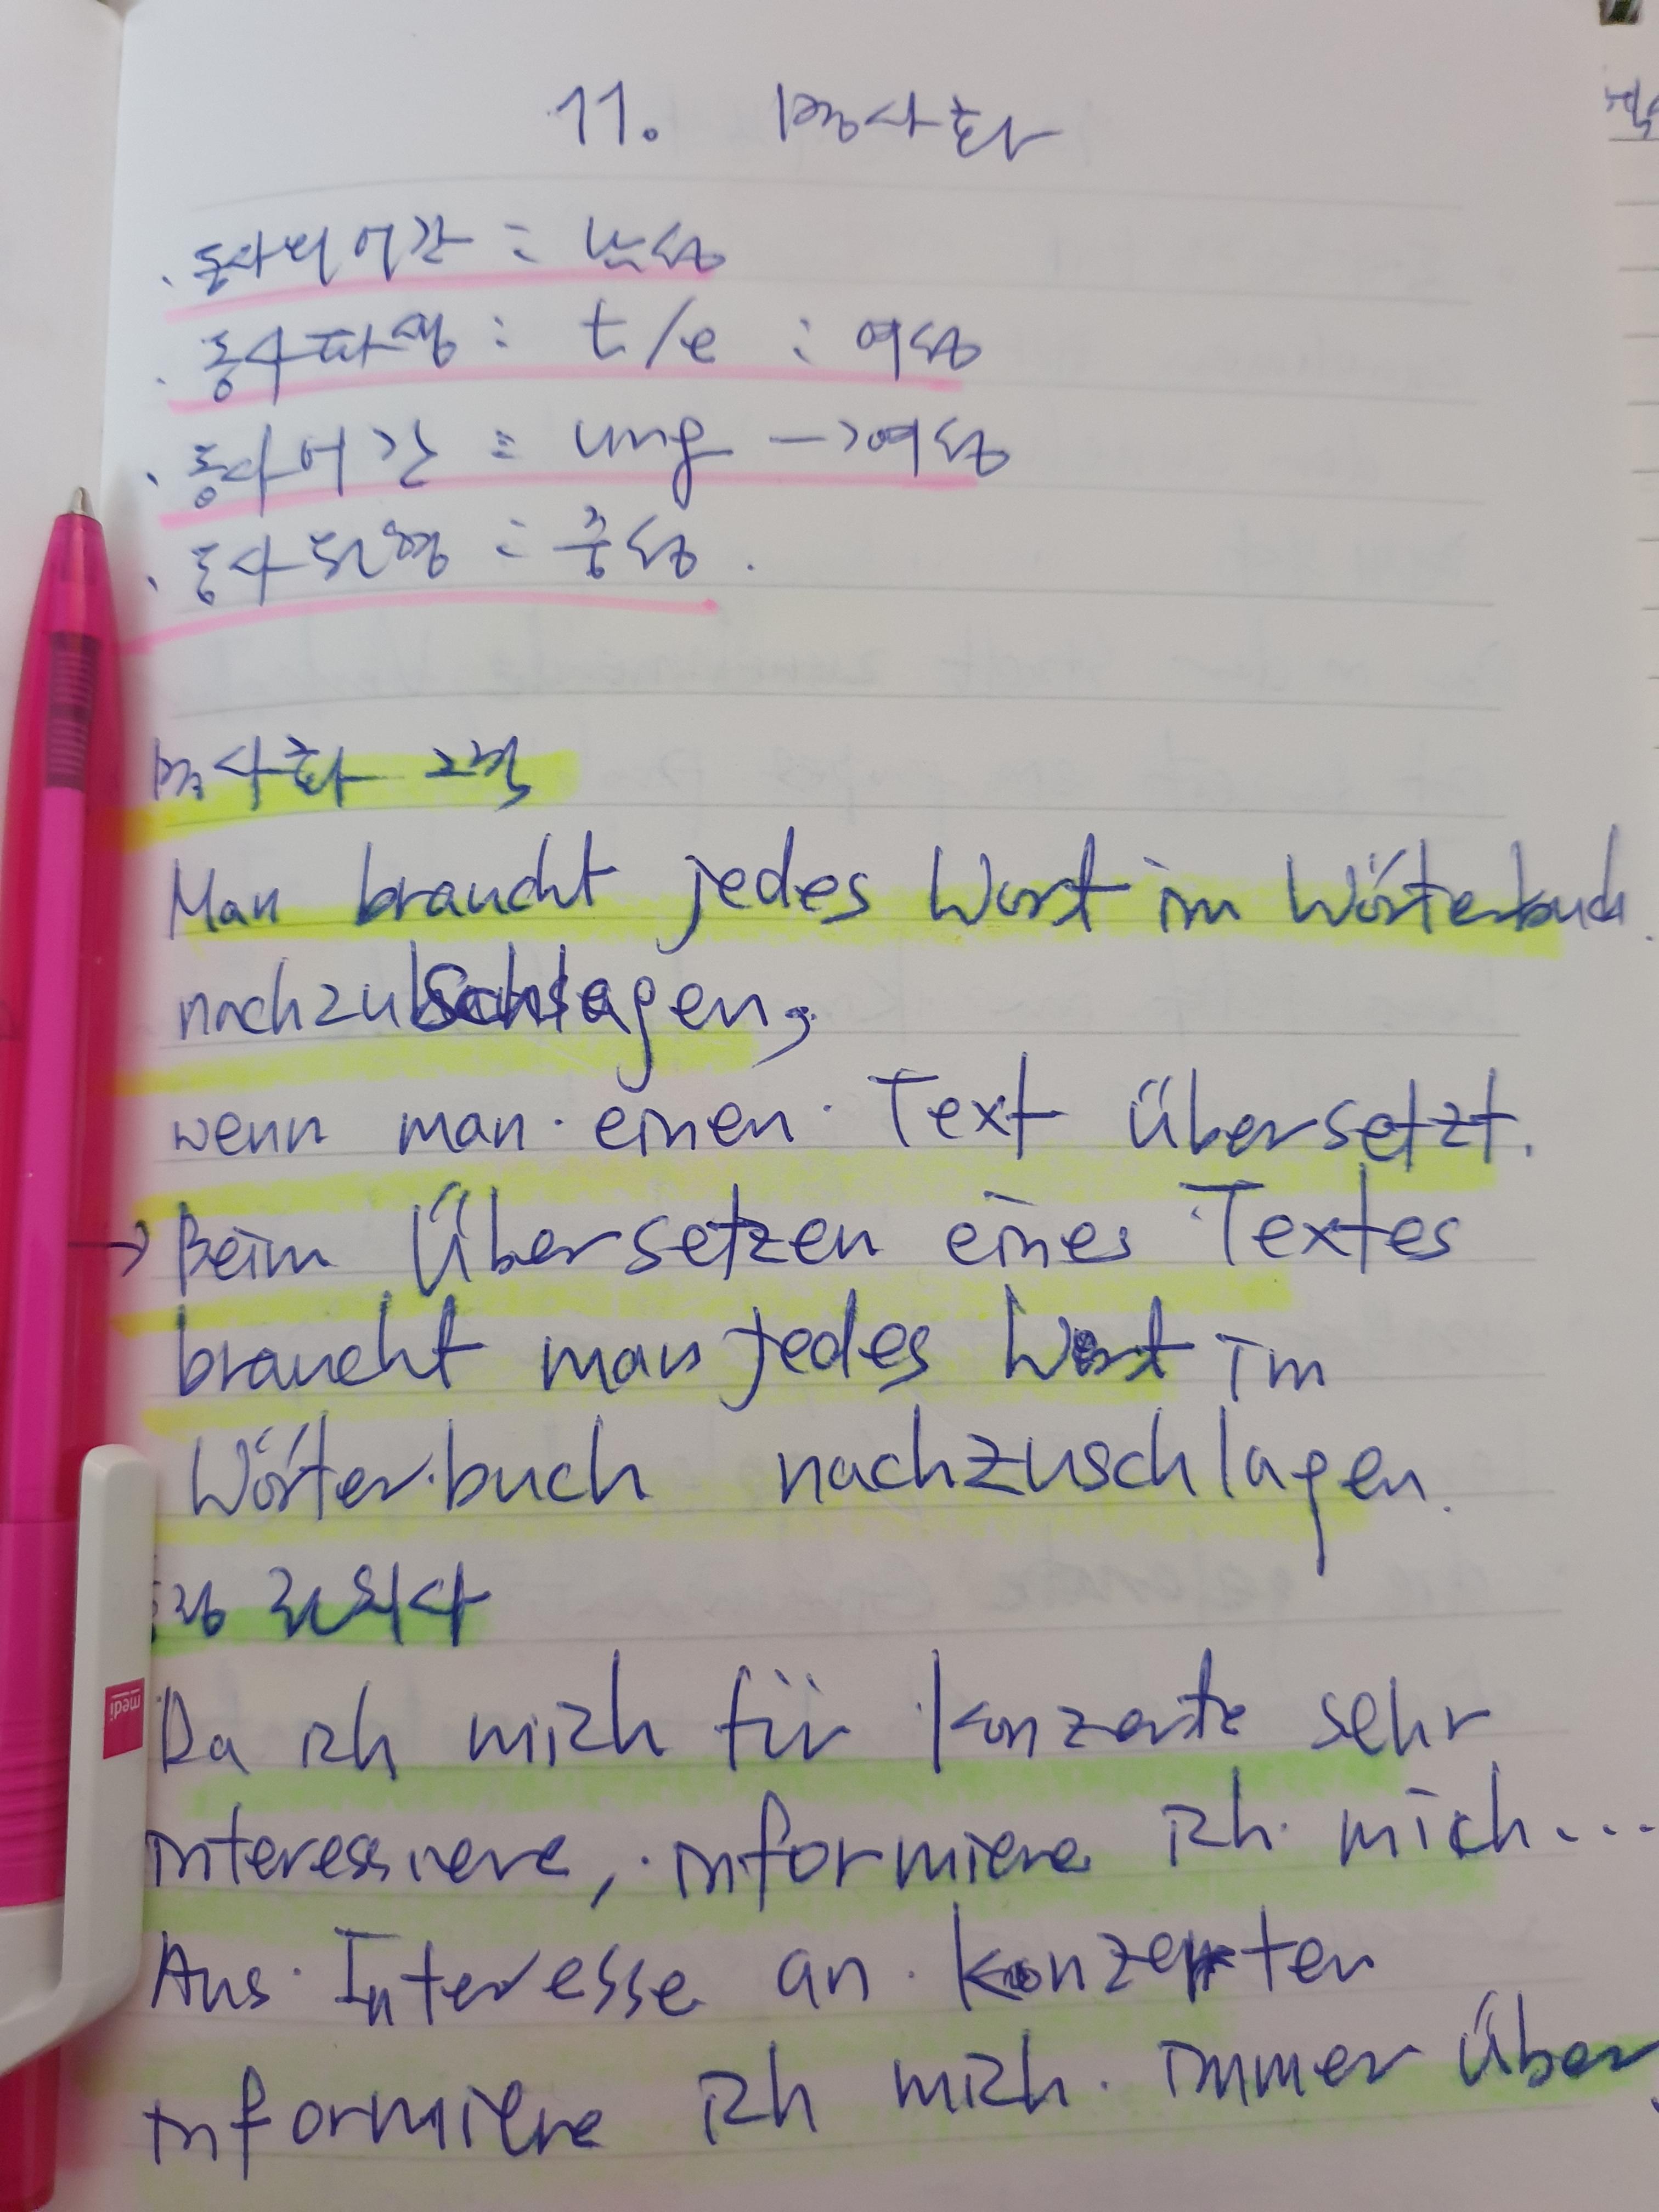 11. 명사화
. 동사의 어간 : 남성
. 동사파생 : t/e : 여성
. 동사어간 : ung -> 여성
. 동사원형 : 중성.
명사화 2격
Man braucht jedes Wort im Wörterbuch
nachzuschlagen,
wenn man einen Text übersetzt.
→ Beim Übersetzen eines Textes
braucht man jedes Wort im
Wörterbuch nachzuschlagen.
전치사
Da ich mich für Konzerte sehr
interessiere, informiere ich mich...
Aus Interesse an Konzerten
informiere ich mich immer über
medi